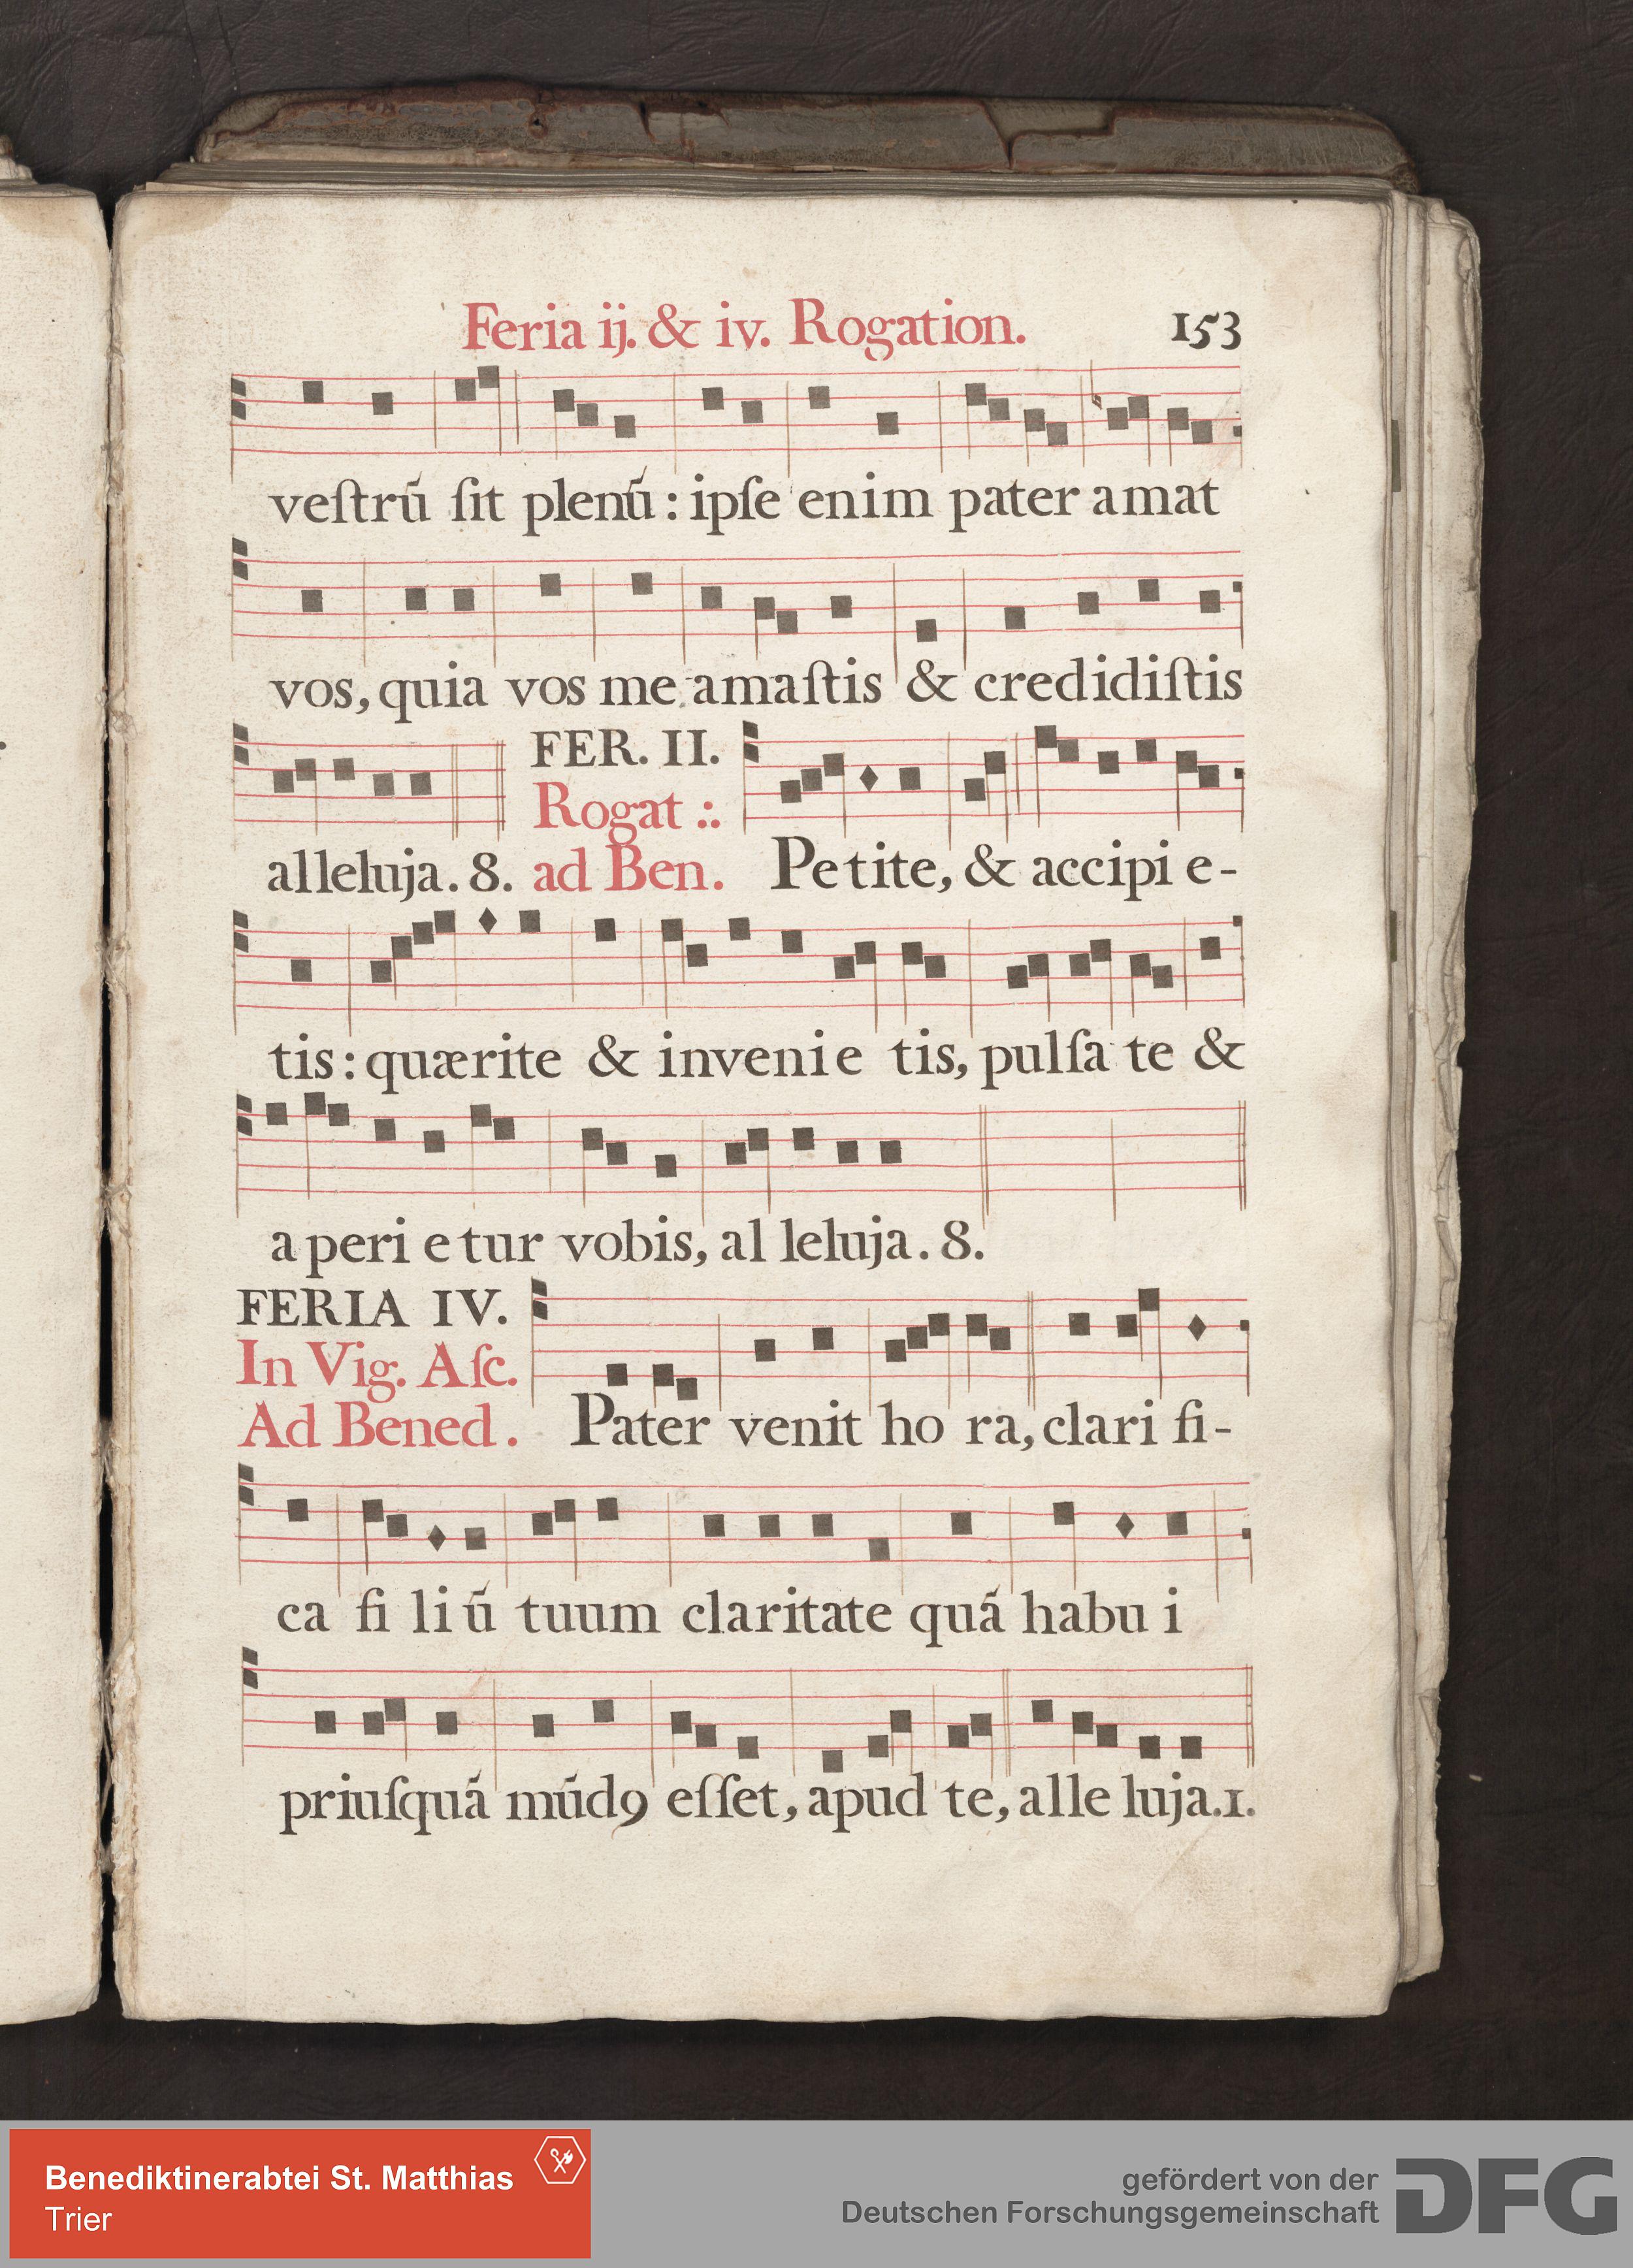 Feria ij. & iv. Rogation. 153
veſtrū́ ſit plenū́ : ipſe enim pater amat
vos, quia vos me amaſtis & credidiſtis
FER. II.
Rogat :.
alleluja. 8. ad Ben. Petite, & accipi e-
tis : quærite & invenie tis, pulſa te &
a peri e tur vobis, al leluja. 8.
FERIA IV.
In Vig. Aſc.
Ad Bened. Pater venit ho ra, clari fi-
ca fi li ū́ tuum claritate quā́ habu i
priuſquā́ mū́dꝰ eſſet, apud te, alle luja. 1.
Benediktinerabtei St. Matthias
Trier
gefördert von der
Deutschen Forschungsgemeinschaft
DFG